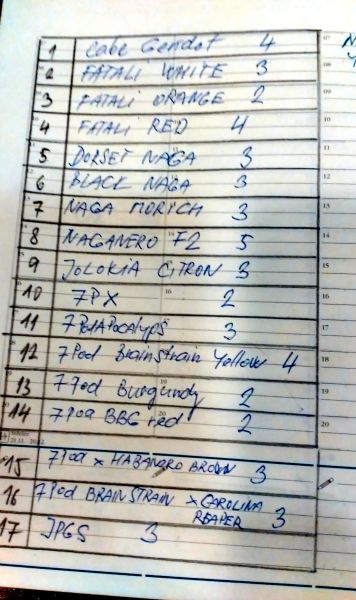 1 cabe Gendot 4
2 FATALI WHITE 3
3 FATALI ORANGE 2
4 FATALI RED 4
5 DORSET NAGA 3
6 BLACK NAGA 3
7 NAGA MORICH 3
8 NAGANERO F2 5
9 JOLOKIA CITRON 3
10 7PX 2
11 7PotApocalyps 3
12 7Pod Brainstrain Yellow 4
13 7Pod Burgundy 2
14 7Pod BBG red 2
15 7Pod x HABANERO BROWN 3
16 7Pod BRAINSTRAIN x CAROLINA
REAPER 3
17 JPGS 3